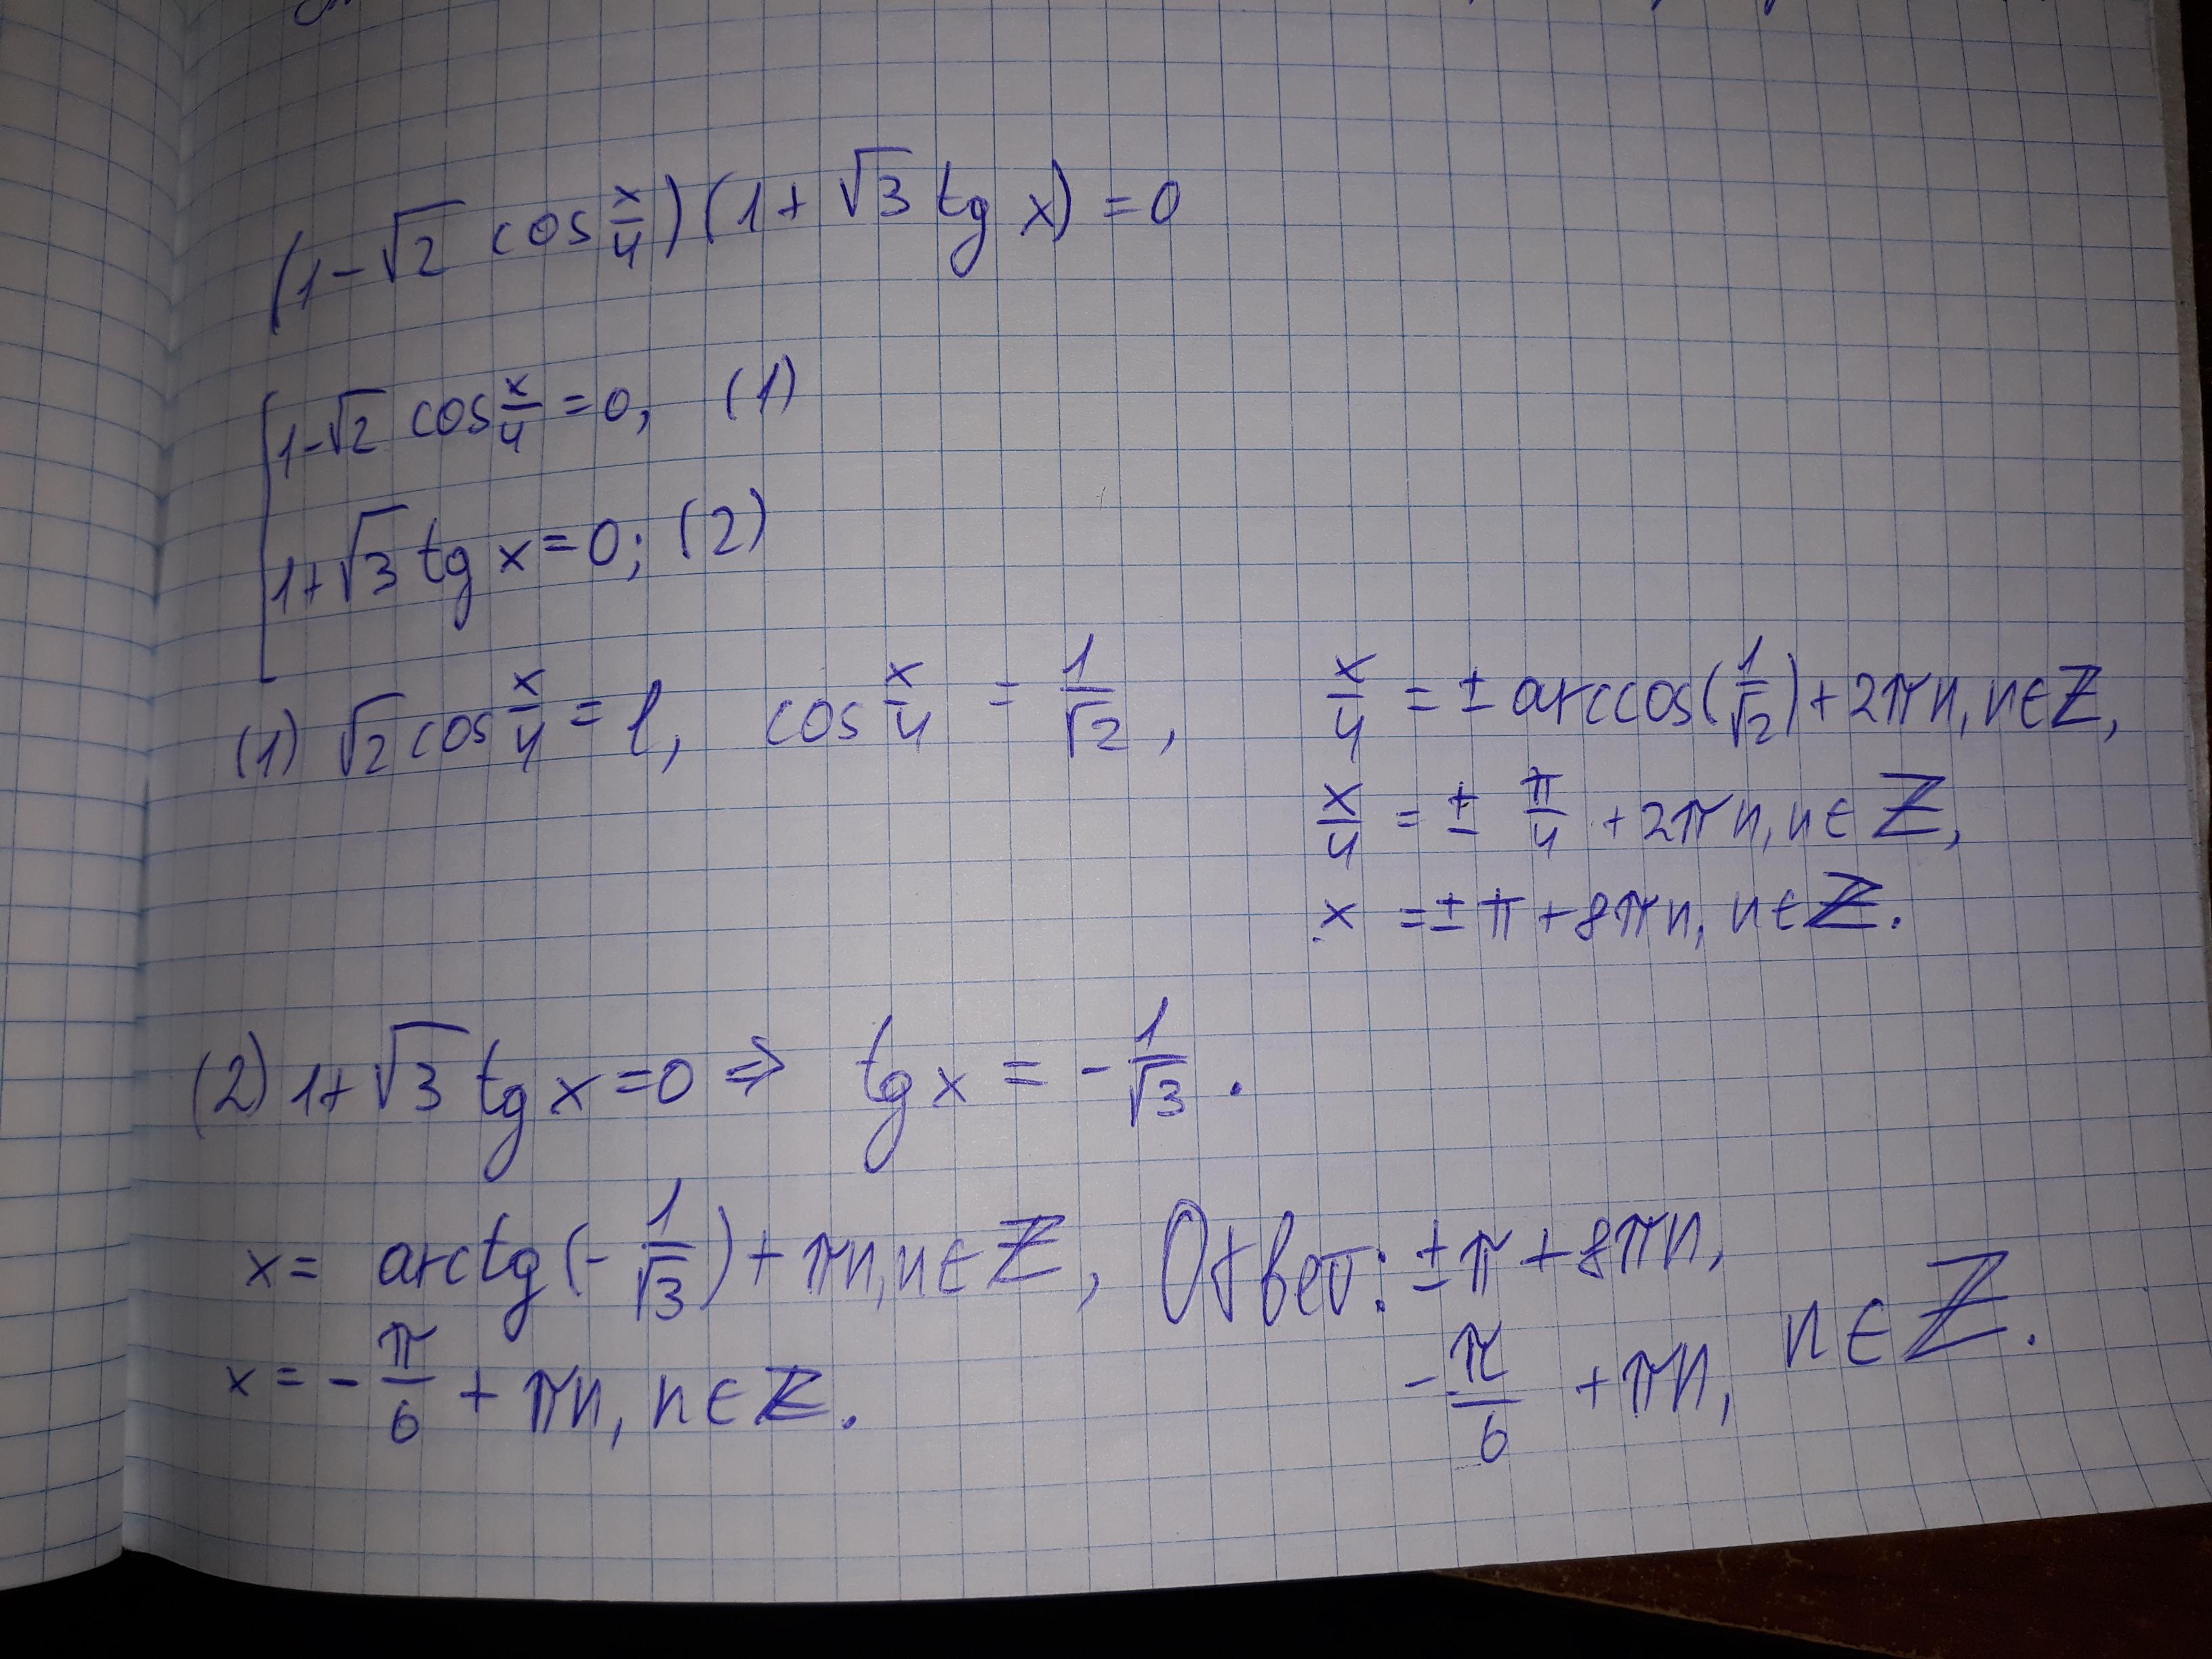 (1-√2 cos x/4)(1+√3 tg x)=0
[1-√2 cos x/4=0, (1)
1+√3 tg x=0; (2)
(1) √2 cos x/4=1, cos x/4 = 1/√2, x/4 = ± arccos(1/√2)+2πn, n∈ℤ,
x/4 = ± π/4 +2πn, n∈ℤ,
x =±π+8πn, n∈ℤ.
(2) 1+√3 tg x=0 ⇒ tg x = -1/√3.
x= arctg(-1/√3)+πn, n∈ℤ, Ответ: ±π+8πn,
x=-π/6 + πn, n∈ℤ. -π/6 +πn, n∈ℤ.